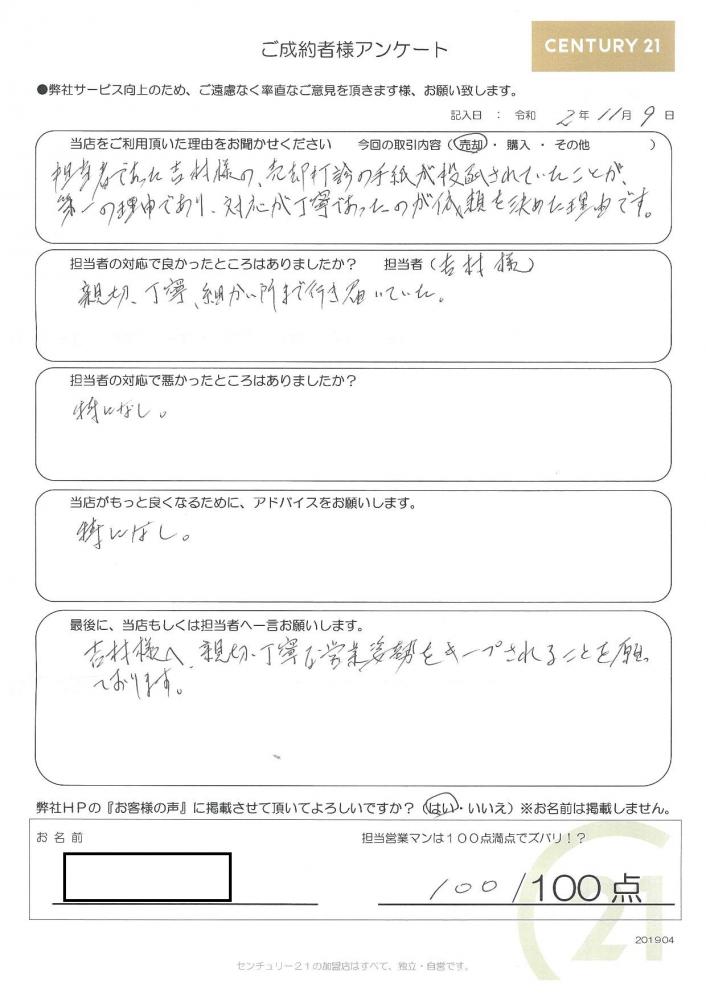 CENTURY 21
ご成約者様アンケート
●弊社サービス向上のため、ご遠慮なく率直なご意見を頂きます様、お願い致します。
記入日 : 令和 2 年 11 月 9 日
当店をご利用頂いた理由をお聞かせください 今回の取引内容 ( 売却 ・ 購入 ・ その他 )
担当者であった吉村様の、売却打診の手紙が投函されていたことが、
第一の理由であり、対応が丁寧であったのが依頼を決めた理由です。
担当者の対応で良かったところはありましたか? 担当者 ( 吉村 様 )
親切、丁寧、細かい所まで行き届いていた。
担当者の対応で悪かったところはありましたか?
特になし。
当店がもっと良くなるために、アドバイスをお願いします。
特になし。
最後に、当店もしくは担当者へ一言お願いします。
吉村様へ、親切、丁寧な営業姿勢をキープされることを願っ
ております。
弊社HPの『お客様の声』に掲載させて頂いてよろしいですか? (はい・いいえ) ※お名前は掲載しません。
お 名 前
担当営業マンは100点満点でズバリ!?
100 /100点
21
201904
センチュリー21の加盟店はすべて、独立・自営です。